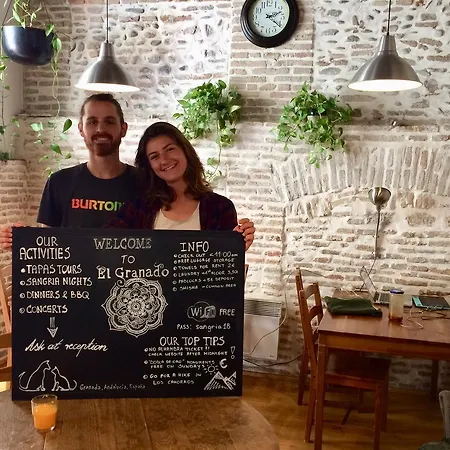 BURTON
OUR
ACTIVITIES
• TAPAS TOURS
• SANGRIA NIGHTS
• DINNERS & BBQ
• CONCERTS
Ask at reception
WELCOME
TO
El Granado
Granada, Andalucía, España
INFO
CHECK OUT <11:00AM
FREE LUGGAGE STORAGE
TOWELS FOR RENT 2€
LAUNDRY
PADLOCKS 5€ DEPOSIT
SHISHA - COMMON AREA
WiFi Free
PASS: sangria18
OUR TOP TIPS
NO ALHAMBRA TICKET?
CHECK WEBSITE AFTER MIDNIGHT!
"COSTA DE CAO" FREE MONUMENTS
ON SUNDAYS!
GO FOR A HIKE IN
LOS CAHOROS